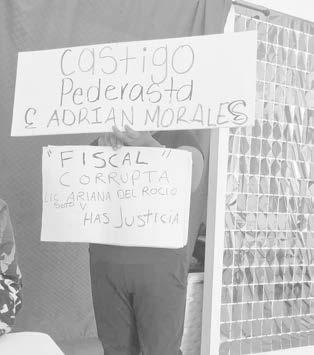 Castigo
Pederasta
ADRIAN MORALES
"FISCAL"
CORRUPTA
LIC ARIANA DEL ROCIO
Soto V
HAS JUSTICIA